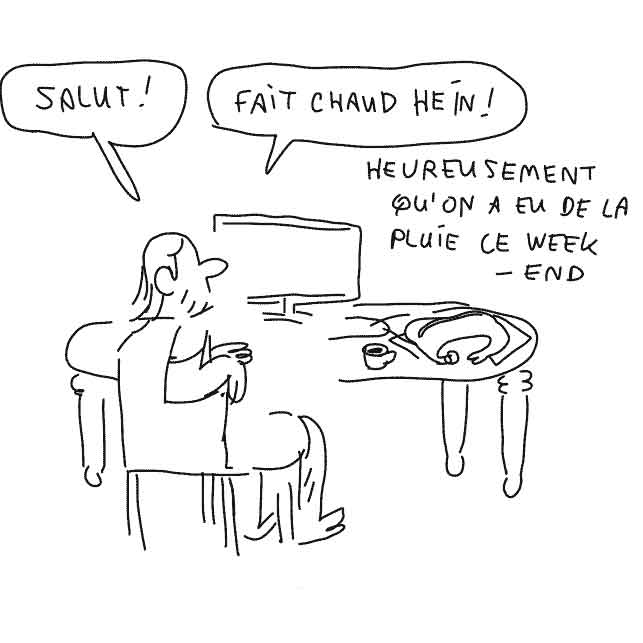 SALUT!
FAIT CHAUD HEIN!
HEUREUSEMENT
QU'ON A EU DE LA
PLUIE CE WEEK
- END